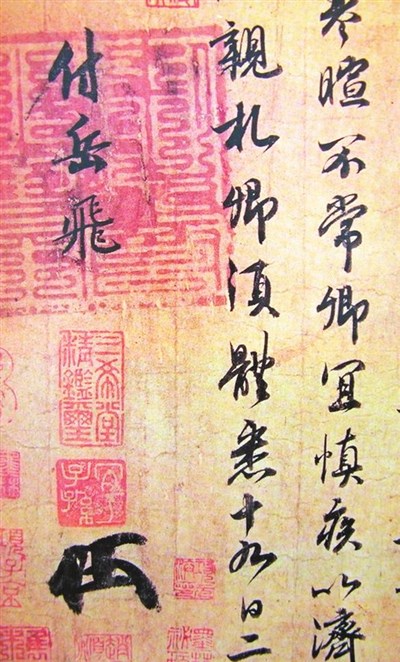 春暄不常卿宜慎疾以濟
親札卿須體悉十九日二
付岳飛
三希堂精鑑璽
宜子孫